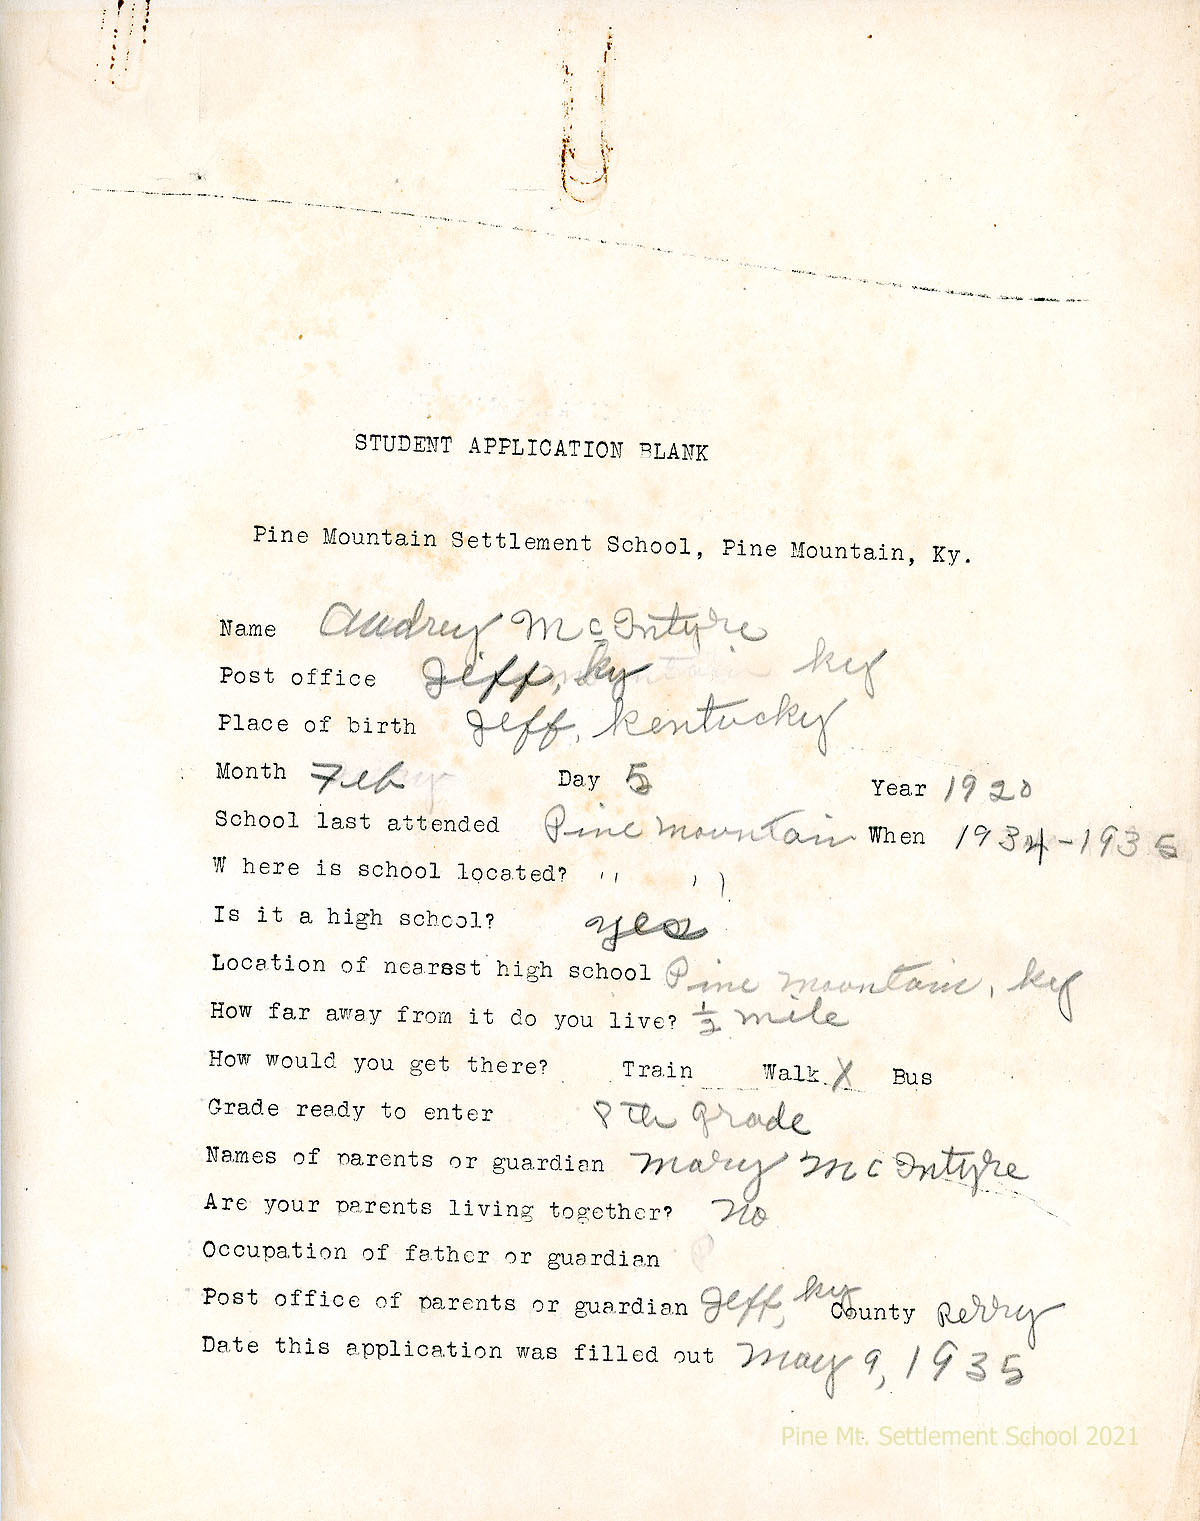 STUDENT APPLICATION BLANK
Pine Mountain Settlement School, Pine Mountain, Ky.
Name Audrey McIntyre
Post office Jeff, Ky Ky
Place of birth Jeff, Kentucky
Month Feb Day 5 Year 1920
School last attended Pine Mountain When 1934-1935
W here is school located? " "
Is it a high school? yes
Location of nearest high school Pine Mountain, Ky
How far away from it do you live? 1/2 mile
How would you get there? Train Walk X Bus
Grade ready to enter 8th grade
Names of parents or guardian Mary McIntyre
Are your parents living together? No
Occupation of father or guardian
Post office of parents or guardian Jeff, Ky County Perry
Date this application was filled out May 9, 1935
Pine Mt. Settlement School 2021